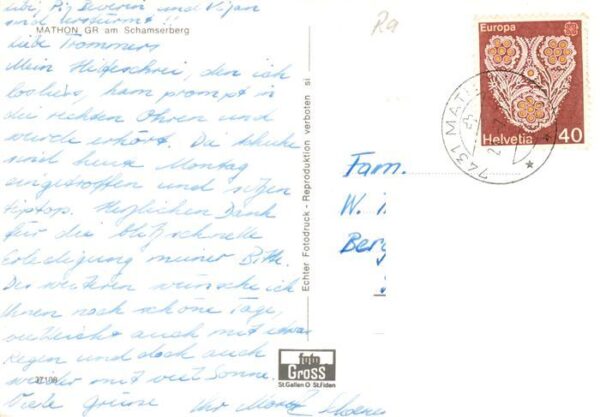 Piz Beverin und
sind verstürmt!!
MATHON GR am Schamserberg
Liebe Trommers
Mein Hilfeschrei, den ich
losliess, kam prompt in
die richten Ohren und
wurde erhört. Die Schuhe
sind heute Montag
eingetroffen und sitzen
tiptop. Herzlichen Dank
für die blitzschnelle
Erledigung meiner Bitte.
Des weiteren wünsche ich
Ihnen noch schöne Tage,
vielleicht auch mit etwas
Regen und doch auch
wieder mit viel Sonne.
Viele Grüsse Ihr
37198
Echter Fotodruck - Reproduktion verboten si
foto
GROSS
St.Gallen O St.Fiden
Ra
Europa
Helvetia 40
7431 MATHON
Fam.
W.
Berg